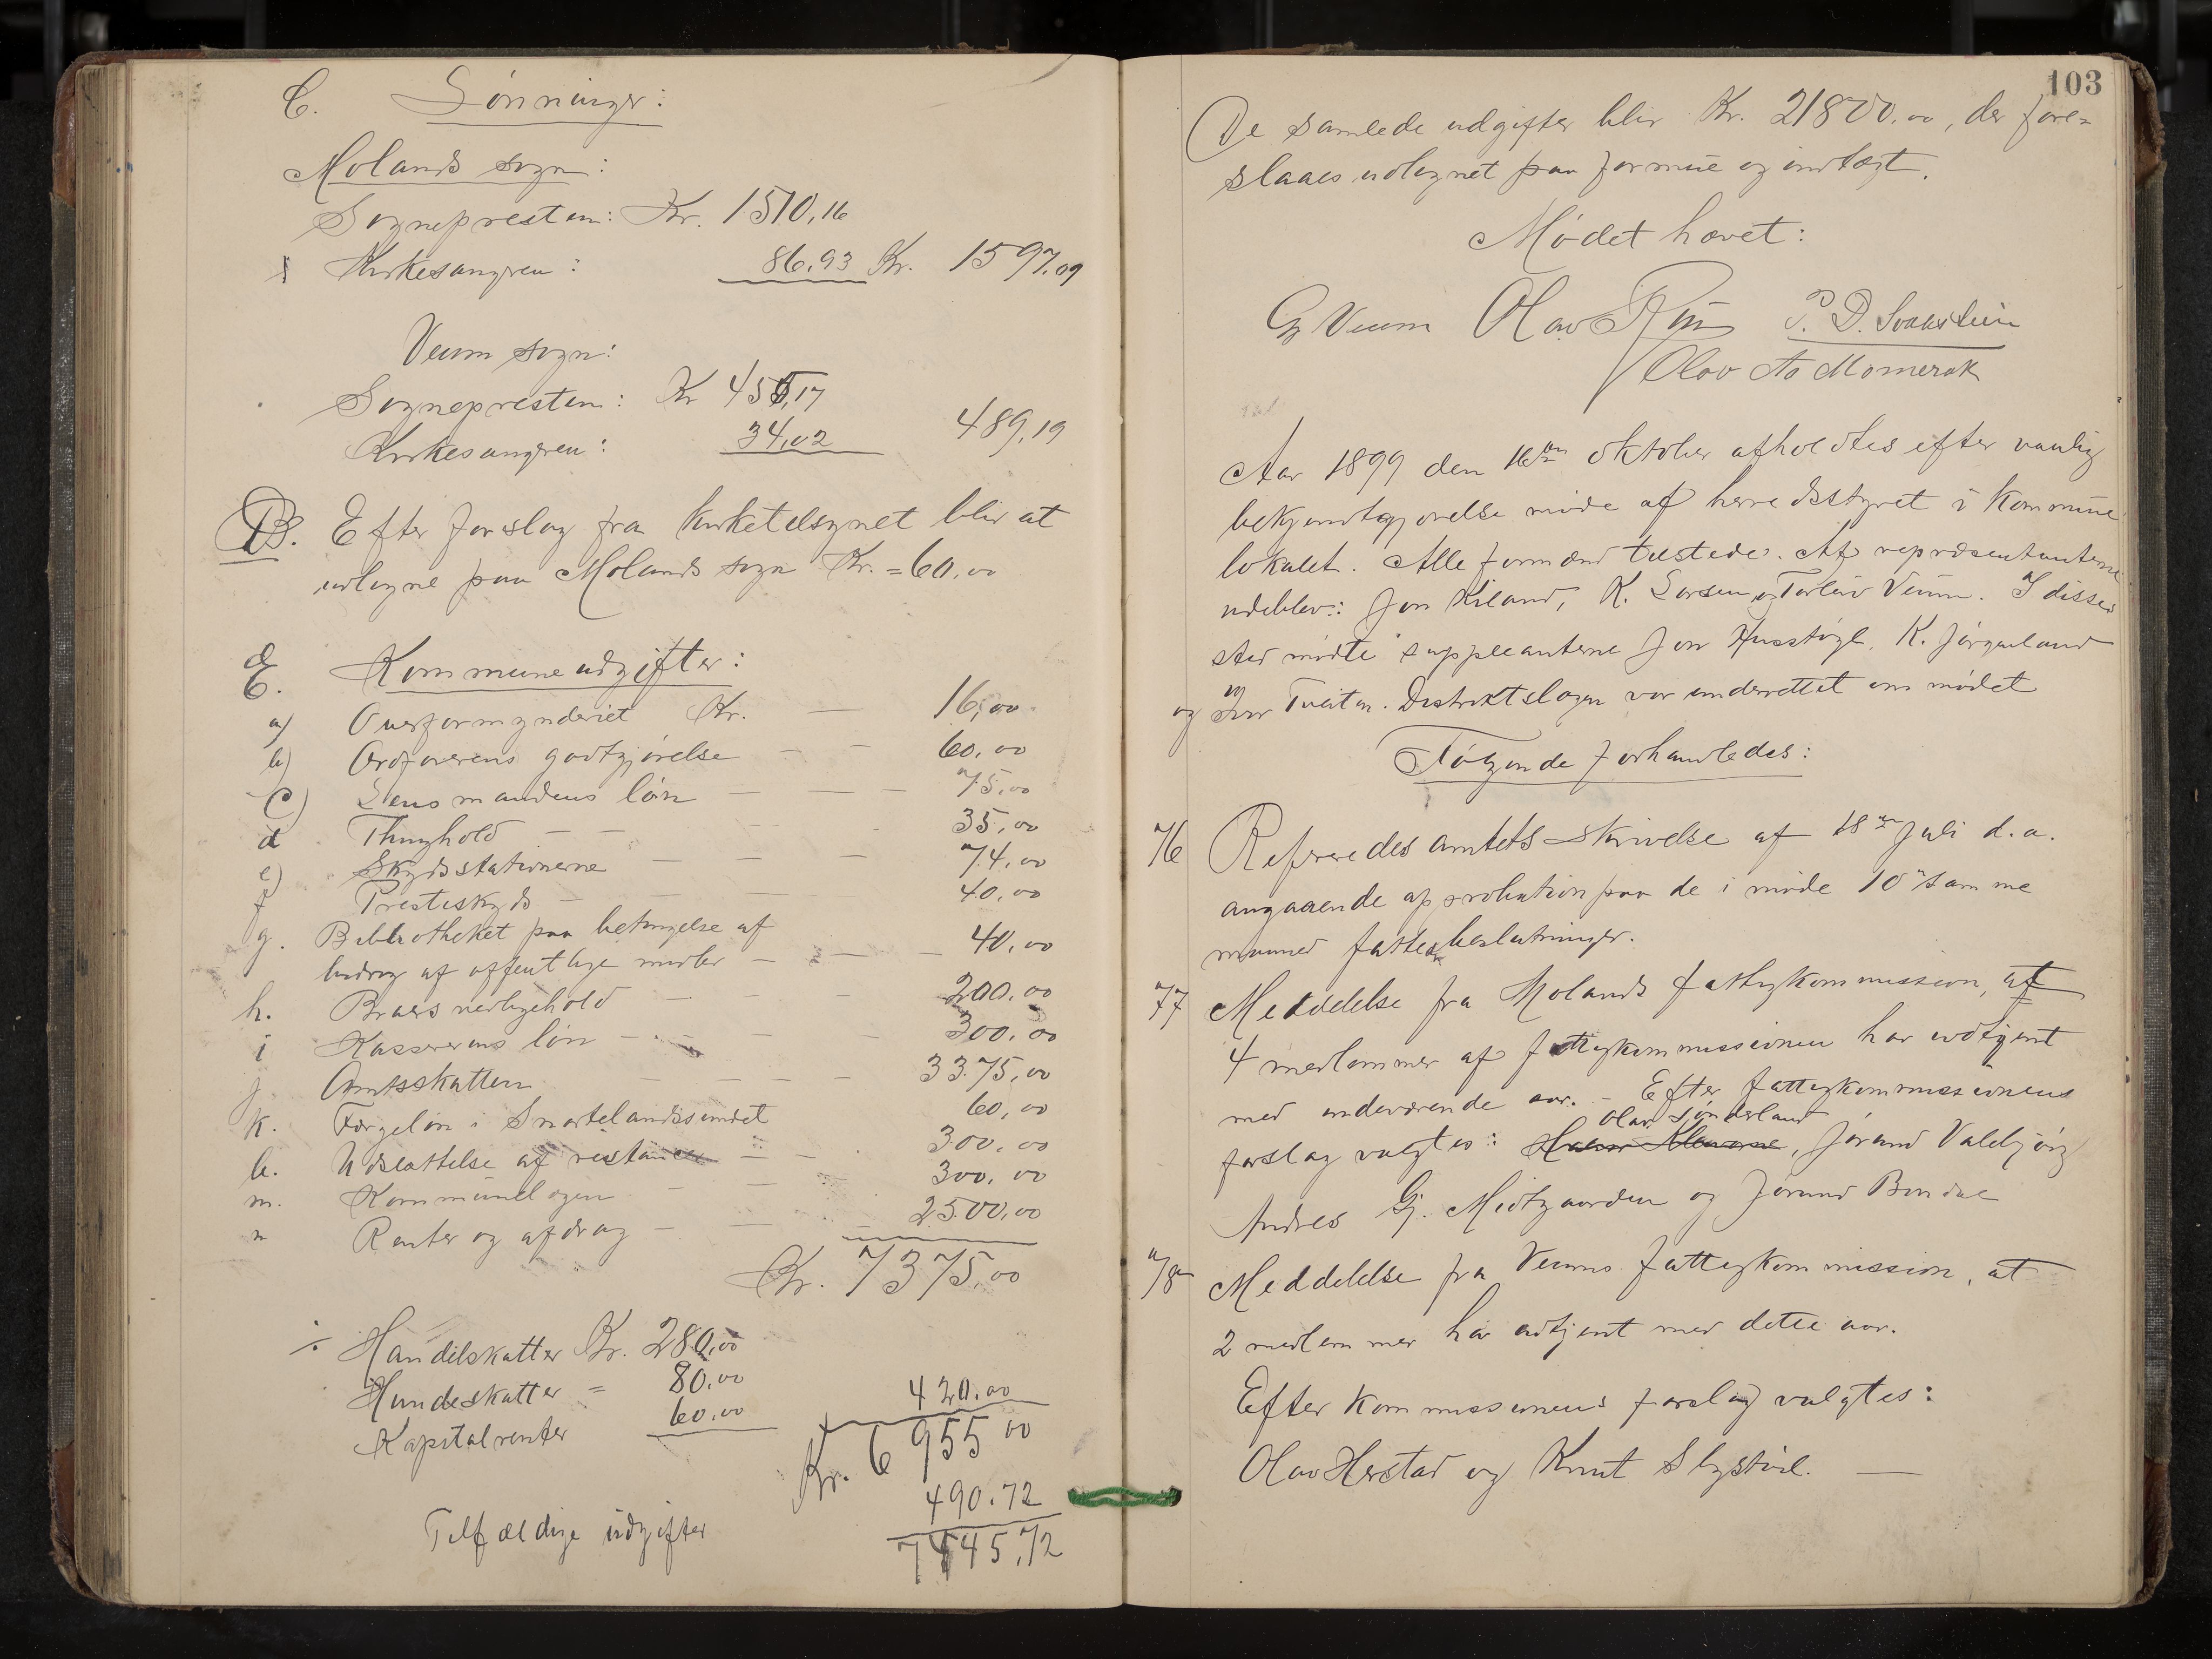 C. Lønninger:
Molands sogn:
Sognepresten: Kr. 1510,16
Kirkesangren: 86,93 Kr. 1597,09
Veum sogn:
Sognepresten: Kr 455,17
Kirkesangren: 34,02 489,19
D. Efter forslag fra kirketilsynet blir at
udlegne paa Molands sogn Kr. = 60,00
E. Kommuneudgifter:
a) Overformynderiet Kr. — 16,00
b) Ordførerens godtgjørelse — — 60,00
c) Lensmandens løn — — — 75,00
d Thinghold — — 35,00
e) Skydsstationerne — — — 74,00
f Presteskyds — — — 40,00
g. Bibliotheket paa betingelse af
bidrag af offentlige midler — — — 40,00
h. Braers vedligehold — — 200,00
i Kassererens løn — — — 300,00
j. Amtsskatten — — — — 3375,00
k. Færgeløn i Snartelandssundet 60,00
l. Udsættelse af restancer — — 300,00
m. Kommunelægen — — 300,00
n Renter og afdrag — — 2500,00
Kr. 7375,00
÷ Handelskatter Kr. 280,00
Hundeskatter = 80,00
Kapitalrenter 60,00 420,00
Kr. 6955 00
Tilfældige udgifter 490.72
7445,72
103
De samlede udgifter blir Kr. 21800,00, der fore=
slaaes udlignet paa formue og indtægt.
Mødet hævet:
G Veum Olav Riis P. D. Svaastuin
Olav As Momerak
Aar 1899 den 16de oktober afholdtes efter vanlig
bekjendtgjørelse møde af herredsstyret i kommune
lokalet. Alle formænd tilstede. Af repræsentanterne
udeblev: Jon Kiland, K. Larsen og Torleiv Veum. I disses
sted mødte suppleanterne Jon Husstøyl, K. Jørgenland
og Tveiten. Distriktslægen var underrettet om mødet
Følgende forhandledes:
76 Refereredes amtets skrivelse af 18de Juli d.a.
angaaende approbation paa de i møde 10de samme
maaned fattede beslutninger.
77 Meddelelse fra Molands fattigkommission, at
4 medlemmer af fattigkommissionen har udtjent
med indeværende aar. — Efter fattigkommissionens
Olav Sønderland
forslag valgtes: , Jørund Valebjørg
Andres Gj. Midtgaarden og Jørund Bondal
78 Meddelelse fra Veums fattigkommission, at
2 medlemmer har udtjent med dette aar.
Efter kommissionens forslag valgtes:
Olav Herstad og Knut Slystøil. —